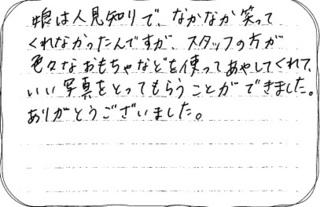 娘は人見知りで、なかなか笑って
くれなかったんですが、スタッフの方が
色々なおもちゃなどを使ってあやしてくれて、
いい写真をとってもらうことができました。
ありがとうございました。